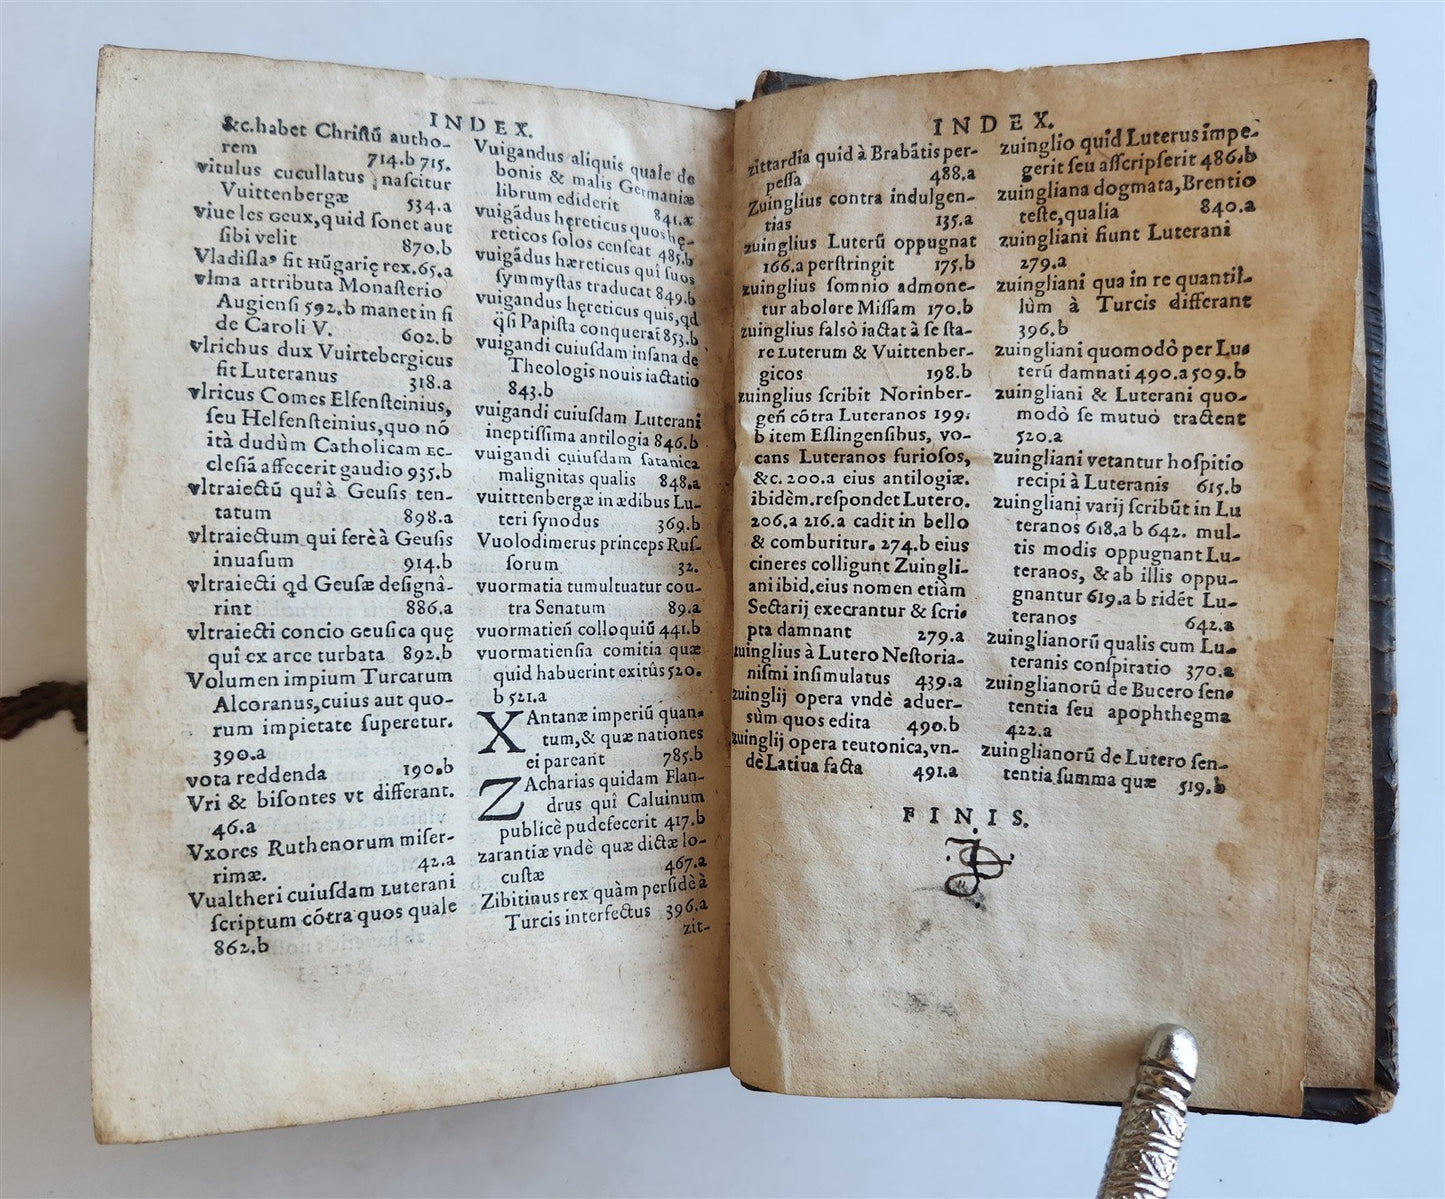 INDEX.
&c.habet Christũ autho-
rem 714.b 715.
vitulus cucullatus nascitur
Vuittenbergæ 534.a
viue les Geux,quid sonet aut
sibi velit 870.b
Vladisla⁹ fit Hũgarię rex.65.a
vlma attributa Monasterio
Augiensi 592.b manet in si
de Caroli V. 602.b
vlrichus dux Vuirtebergicus
fit Luteranus 318.a
vlricus Comes Elfensteinius,
seu Helfensteinius,quo nõ
ità dudùm Catholicam Ec-
clesiã affecerit gaudio 935.b
vltraiectũ quî à Geusis ten-
tatum 898.a
vltraiectum qui ferè à Geusis
inuasum 914.b
vltraiecti qd Geusæ designâ-
rint 886.a
vltraiecti concio Geusica quę
quî ex arce turbata 892.b
Volumen impium Turcarum
Alcoranus,cuius aut quo-
rum impietate superetur.
390.a
vota reddenda 190.b
Vri & bisontes vt differant.
46.a
Vxores Ruthenorum miser-
rimæ. 42.a
Vualtheri cuiusdam Luterani
scriptum cõtra quos quale
862.b
Vuigandus aliquis quale de
bonis & malis Germaniæ
librum ediderit 841.a
vuigãdus hęreticus quos hę-
reticos solos censeat 485.b
vuigãdus hæreticus quî suos
symmystas traducat 849.b
vuigandus hęreticus quis,qd
q̃si Papista conquerat̃ 853.b
vuigandi cuiusdam insana de
Theologis nouis iactatio
843.b
vuigandi cuiusdam Luterani
ineptissima antilogia 846.b
vuigandi cuiusdam satanica
malignitas qualis 848.a
vuitttenbergæ in ædibus Lu-
teri synodus 369.b
Vuolodimerus princeps Rus-
sorum 32.
vuormatia tumultuatur cou-
tra Senatum 89.a
vuormatieñ colloquiũ 441.b
vuormatiensia comitia quæ
quid habuerint exitûs 520.
b 521.a
XAntanæ imperiũ quan-
tum,& quæ nationes
ei pareant 785.b
ZAcharias quidam Flan-
drus quî Caluinum
publicè pudefecerit 417.b
zarantiæ vndè quæ dictæ lo-
custæ 467.a
Zibitinus rex quàm perfidè à
Turcis interfectus 396.a
zit-
INDEX.
zittardia quid à Brabãtis per-
pessa 488.a
Zuinglius contra indulgen-
tias 135.a
zuinglius Luterũ oppugnat
166.a perstringit 175.b
zuinglius somnio admone-
tur abolere Missam 170.b
zuinglius falsò iactat à se sta-
re Luterum & Vuittenber-
gicos 198.b
zuinglius scribit Norinber-
geñ cõtra Luteranos 199.
b item Eslingensibus, vo-
cans Luteranos furiosos,
&c. 200.a eius antilogiæ.
ibidèm.respondet Lutero.
206.a 216.a cadit in bello
& comburitur. 274.b eius
cineres colligunt Zuingli-
ani ibid.eius nomen etiàm
Sectarij execrantur & scri-
pta damnant 279.a
zuinglius à Lutero Nestoria-
nismi insimulatus 439.a
zuinglij opera vndè aduer-
sùm quos edita 490.b
zuinglij opera teutonica,vn-
dè Latiua facta 491.a
zuinglio quid Luterus impe-
gerit seu asscripserit 486.b
zuingliana dogmata,Brentio
teste,qualia 840.a
zuingliani fiunt Luterani
279.a
zuingliani qua in re quantil-
lùm à Turcis differant
396.b
zuingliani quomodò per Lu-
terũ damnati 490.a 509.b
zuingliani & Luterani quo-
modò se mutuò tractent
520.a
zuingliani vetantur hospitio
recipi à Luteranis 615.b
zuingliani varij scribũt in Lu
teranos 618.a b 642. mul-
tis modis oppugnant Lu-
teranos, & ab illis oppu-
gnantur 619.a b ridẽt Lu-
teranos 642.a
zuinglianorũ qualis cum Lu-
teranis conspiratio 370.a
zuinglianorũ de Bucero sen-
tentia seu apophthegma
422.a
zuinglianorũ de Lutero sen-
tentia summa quæ 519.b
FINIS.